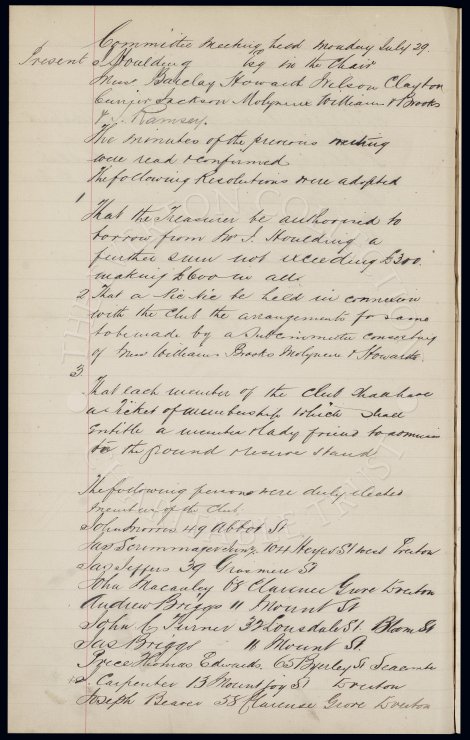 Committee Meeting held Monday July 29.
Present J Houlding Esq in the Chair
Messrs Barclay Howard Wilson Clayton
Currier Jackson Molyneux Williams & Brooks
& J. Ramsey.
The minutes of the previous meeting
were read & confirmed
The following Resolutions were adopted
1
That the Treasurer be authorised to
borrow from Mr J. Houlding a
further sum not exceeding £300
making £600 in all.
2 That a Pic Nic be held in connexion
with the Club the arrangements for same
to be made by a Subcommittee consisting
of Messrs Williams Brooks Molyneux & Howard.
3
That each member of the Club shall have
a Ticket of membership which shall
entitle a member & lady friend to admission
to the ground & reserve stand
The following persons were duly elected
members of the Club
John 49 Abbot St.
Jas Scrimmager Junr. 104 Heyes St West Everton
Jas Jeffers 39 Grasmere St
John Macauley 68 Clarence Grove Everton
Andrew Briggs 11 Mount St
John C Turner 32 Lonsdale St Bloom St
Jas Briggs 11 Mount St.
Price Thomas Edwards 65 Byerley St Seacombe
Carpenter 13 Mountjoy St Everton
Joseph Beaver 58 Clarense Grove Everton